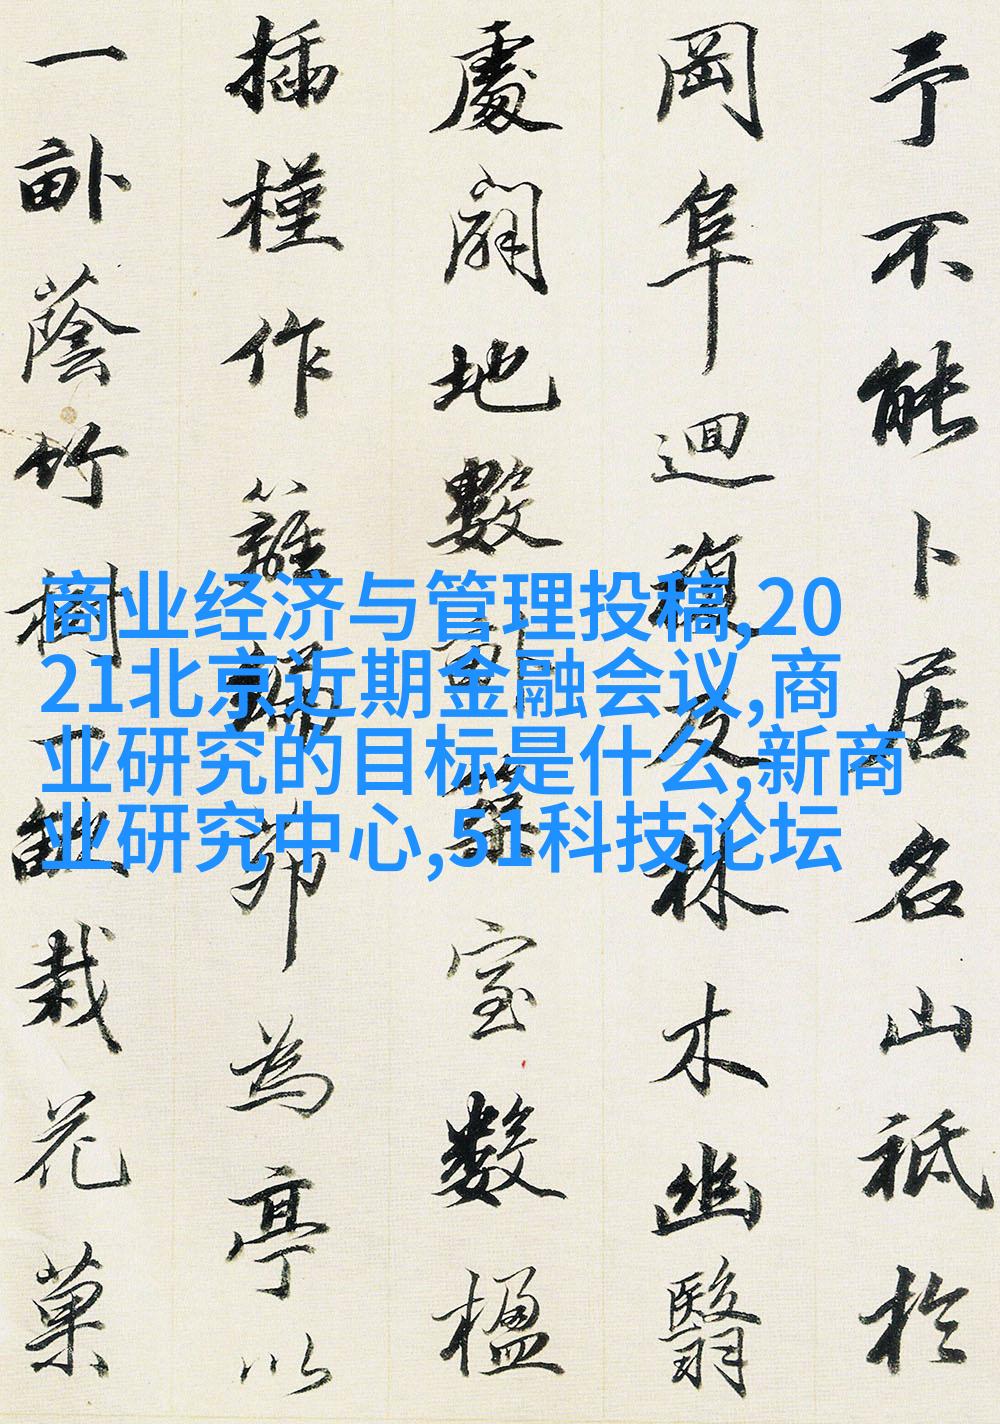 予不能卜居名山祗於
岡阜迴複及林木幽翳
處闢地數畝築室數楹
插槿作籬編茆為亭以
一畝蔭竹樹一畝栽花菓
商业经济与管理投稿,20
21北京近期金融会议,商
业研究的目标是什么,新商
业研究中心,51科技论坛